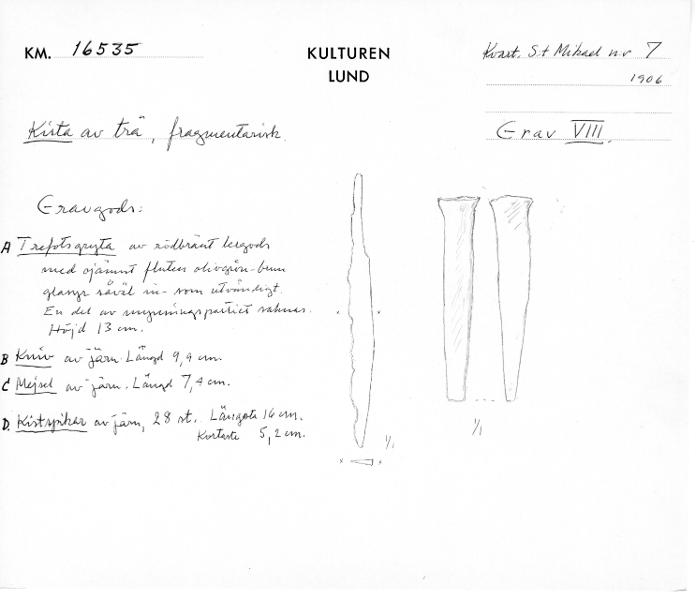 KM. 16535
KULTUREN
LUND
Kvart. S:t Mikael nr 7
1906
Grav VIII.
Kista av trä, fragmentarisk.
Gravgods:
A Trefotsgryta av rödbränt lergods
med ojämnt fluten olivgrön-brun
glasyr såväl in- som utvändigt.
En del av mynningspartiet saknas.
Höjd 13 cm.
B Kniv av järn. Längd 9,4 cm.
C Mejsel av järn. Längd 7,4 cm.
D. Kistspikar av järn, 28 st. Längsta 16 cm.
Kortaste 5,2 cm.
1/1
1/1